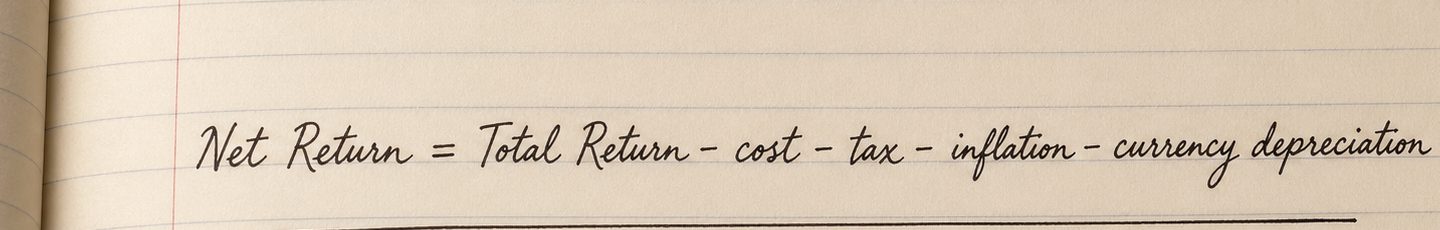 Net Return = Total Return - cost - tax - inflation - currency depreciation